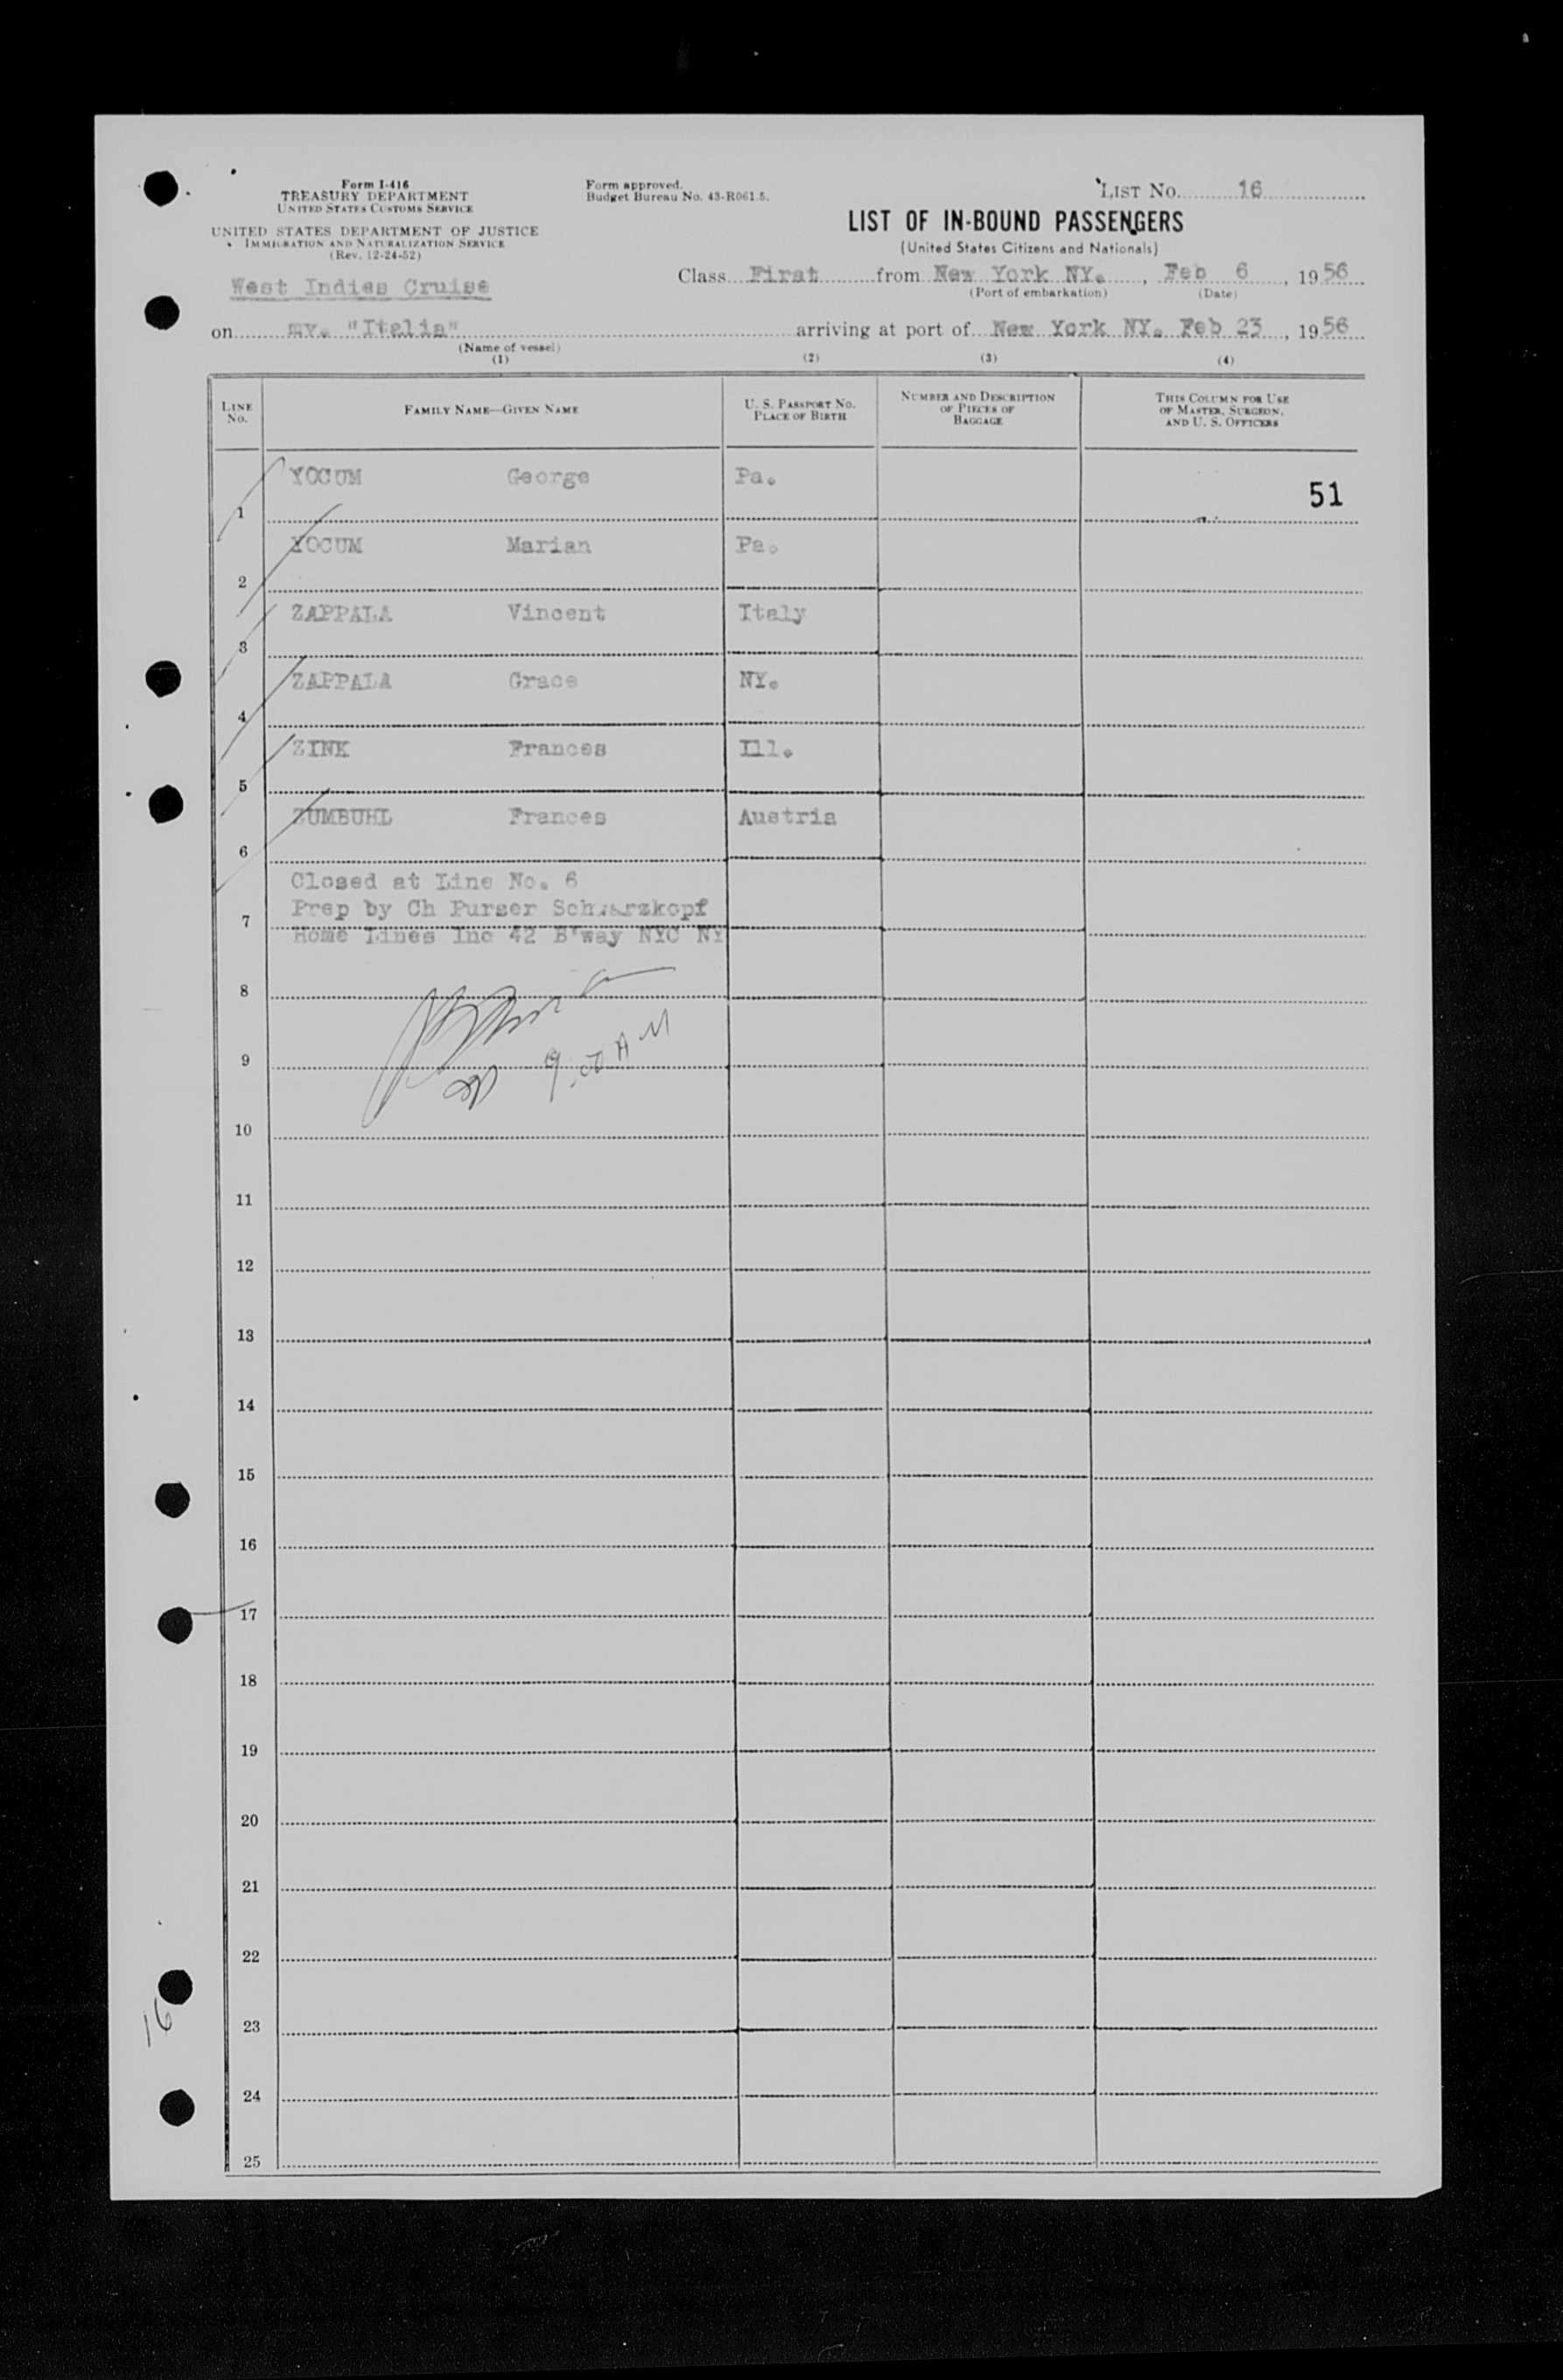 Form I-416
TREASURY DEPARTMENT
UNITED STATES CUSTOMS SERVICE
UNITED STATES DEPARTMENT OF JUSTICE
IMMIGRATION AND NATURALIZATION SERVICE
(Rev. 12-24-52)
Form approved.
Budget Bureau No. 43-R061.5.
LIST NO. 16
LIST OF IN-BOUND PASSENGERS
(United States Citizens and Nationals)
West Indies Cruise
Class First from New York NY. , Feb 6 , 1956
(Port of embarkation) (Date)
on mv. "Italia" arriving at port of New York NY. Feb 23 , 1956
(Name of vessel)
(1) (2) (3) (4)
LINE NO. FAMILY NAME—GIVEN NAME U. S. PASSPORT NO. PLACE OF BIRTH NUMBER AND DESCRIPTION OF PIECES OF BAGGAGE THIS COLUMN FOR USE OF MASTER, SURGEON, AND U. S. OFFICERS
1 YOCUM George Pa. 51
2 YOCUM Marian Pa.
3 ZAPPALA Vincent Italy
4 ZAPPALA Grace NY.
5 ZINK Frances Ill.
6 ZUMBUHL Frances Austria
Closed at Line No. 6
7 Prep by Ch Purser Schwarzkopf
Home Lines Inc 42 B'way NYC NY
8
9 9:00 AM
10
11
12
13
14
15
16
17
18
19
20
21
22
23
16
24
25